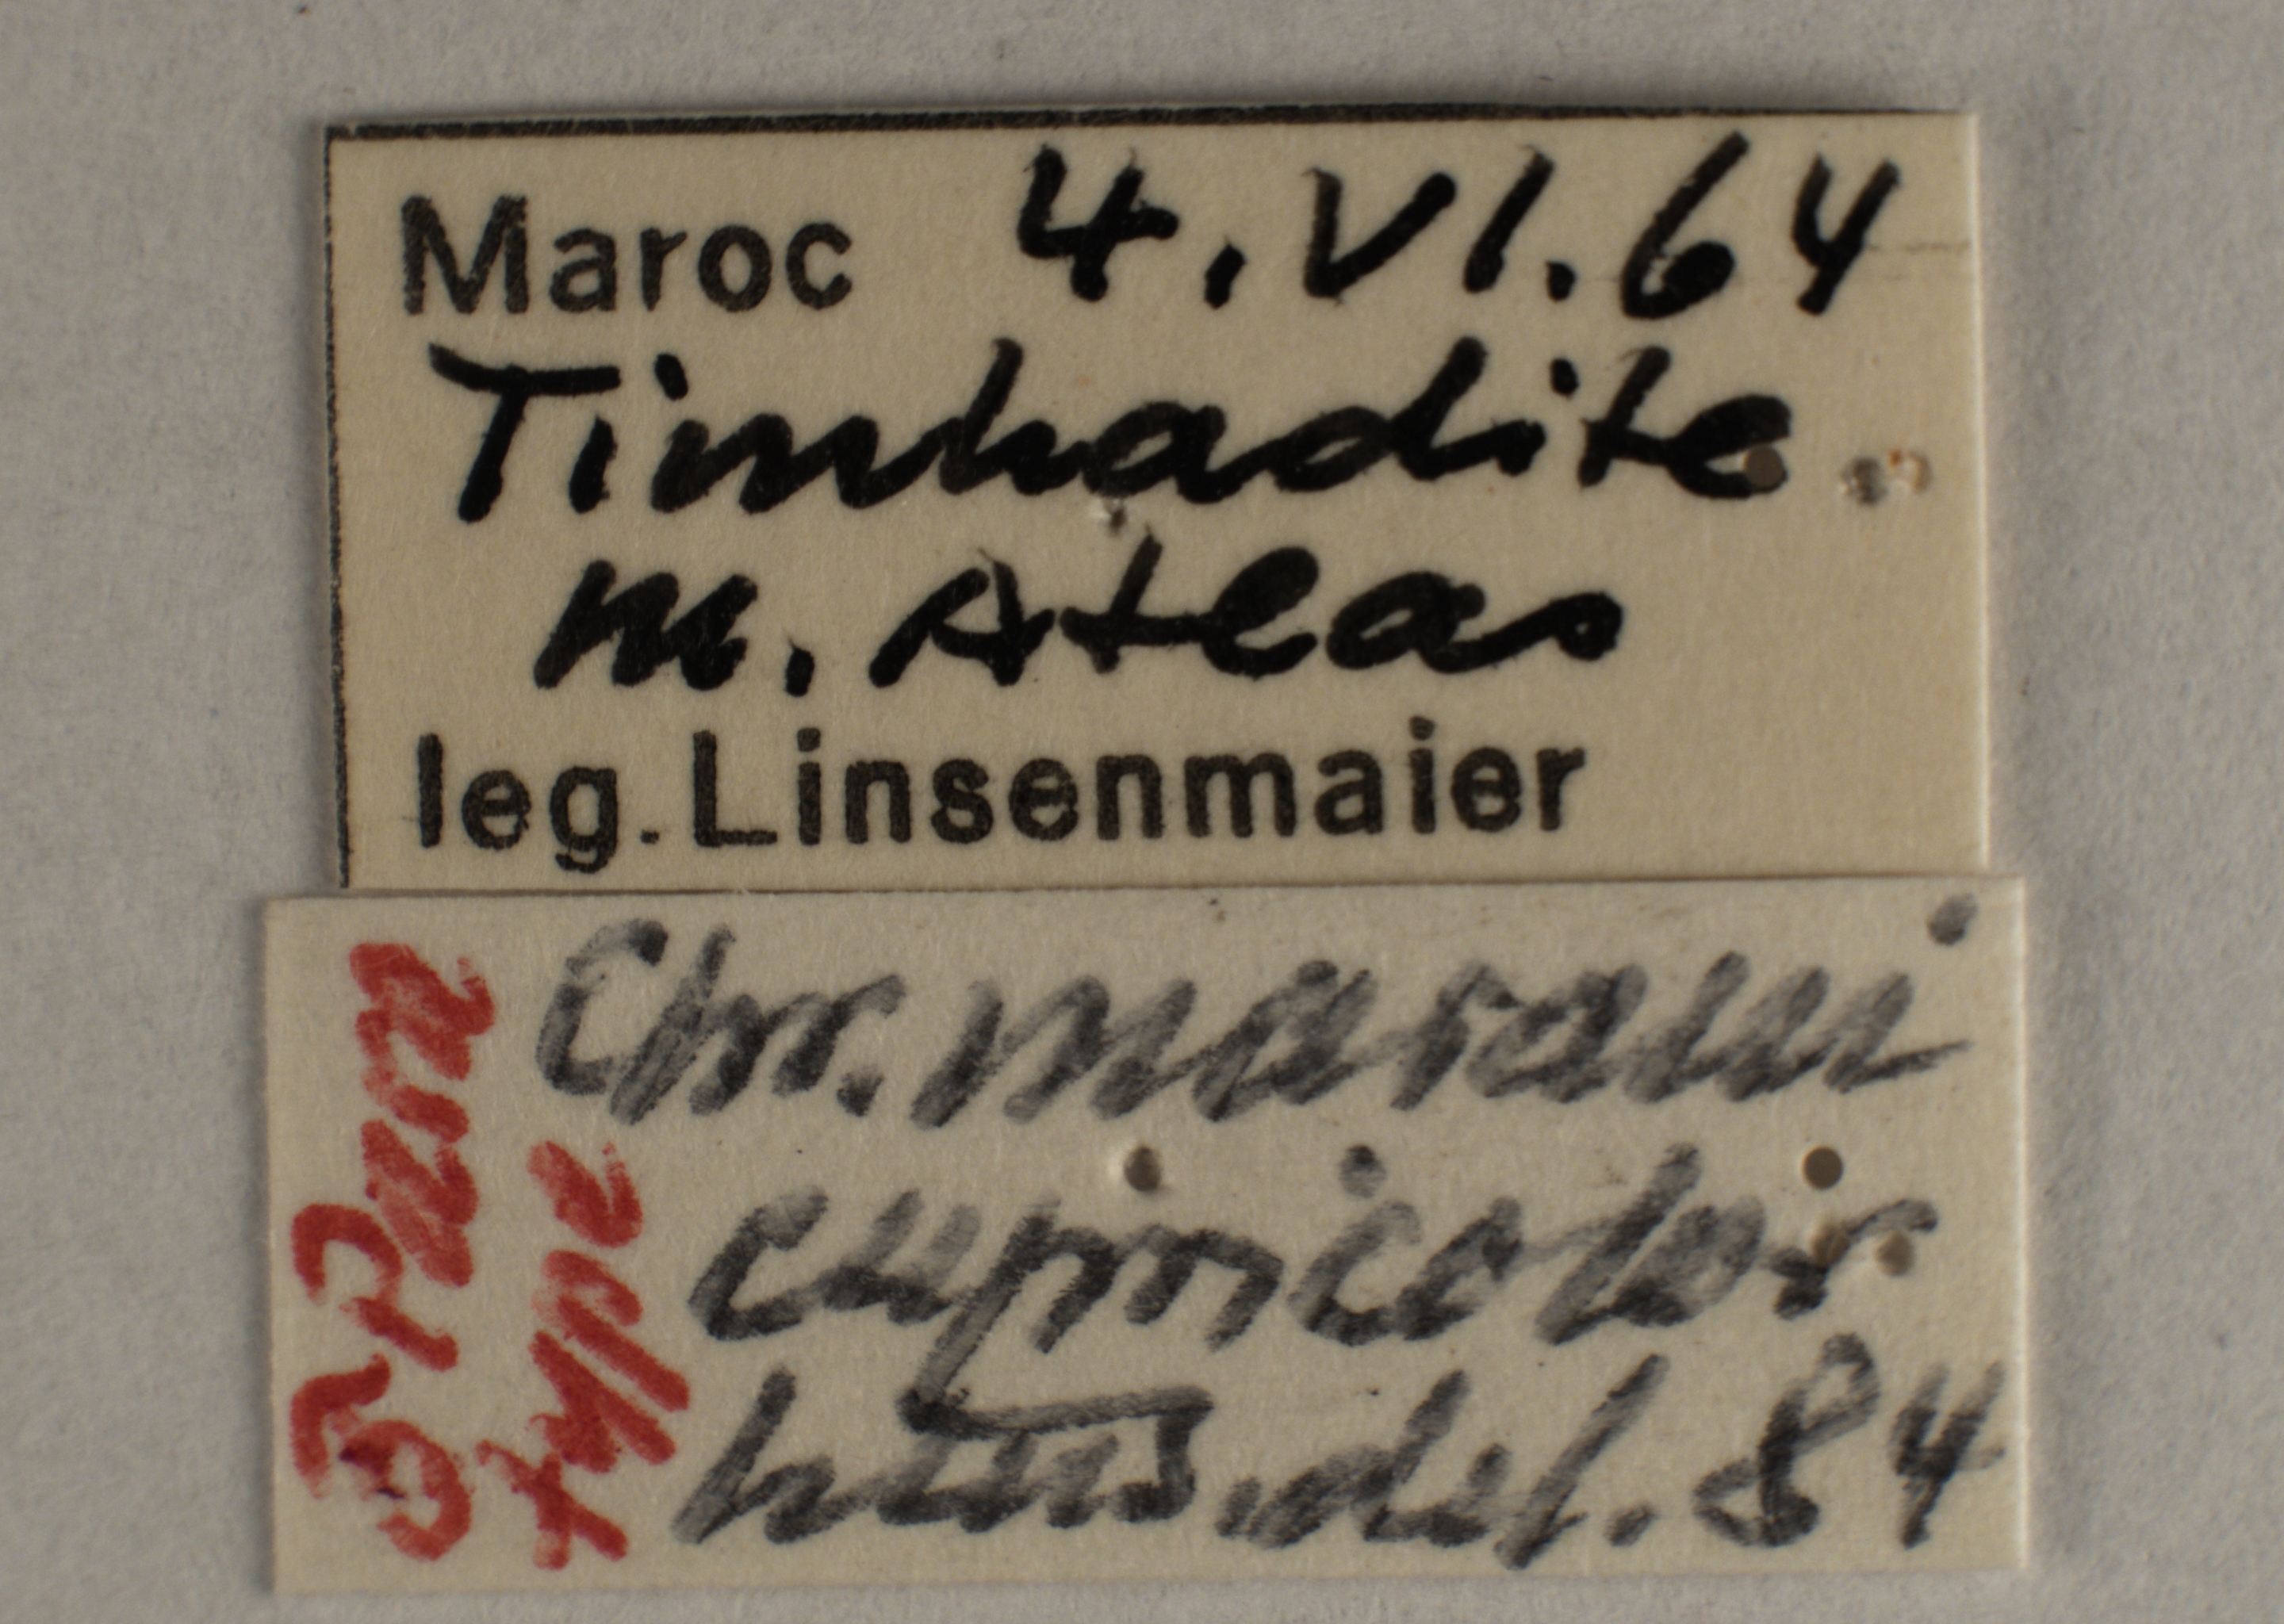 Maroc 4.VI.64
Timhadite
m. Atlas
leg. Linsenmaier
Chr. marani
cupricolor
Lins. det. 84
type